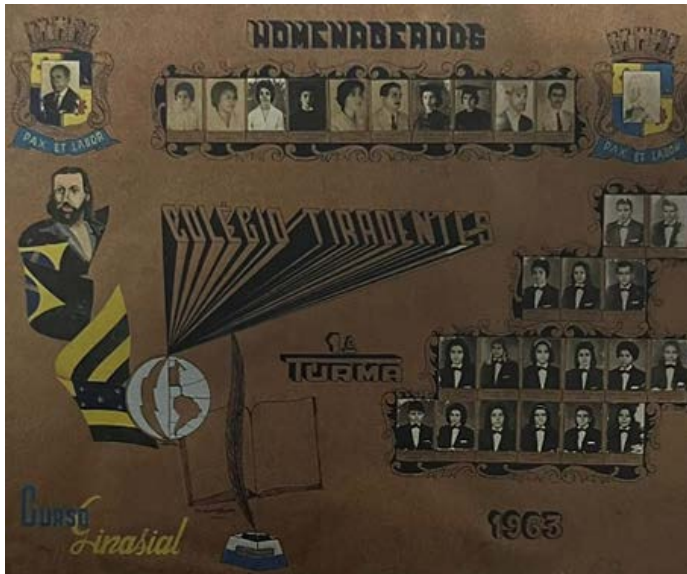 HOMENAGEADOS
PAX ET LABOR
PAX ET LABOR
COLÉGIO TIRADENTES
1ª
TURMA
CURSO
Ginasial
1963